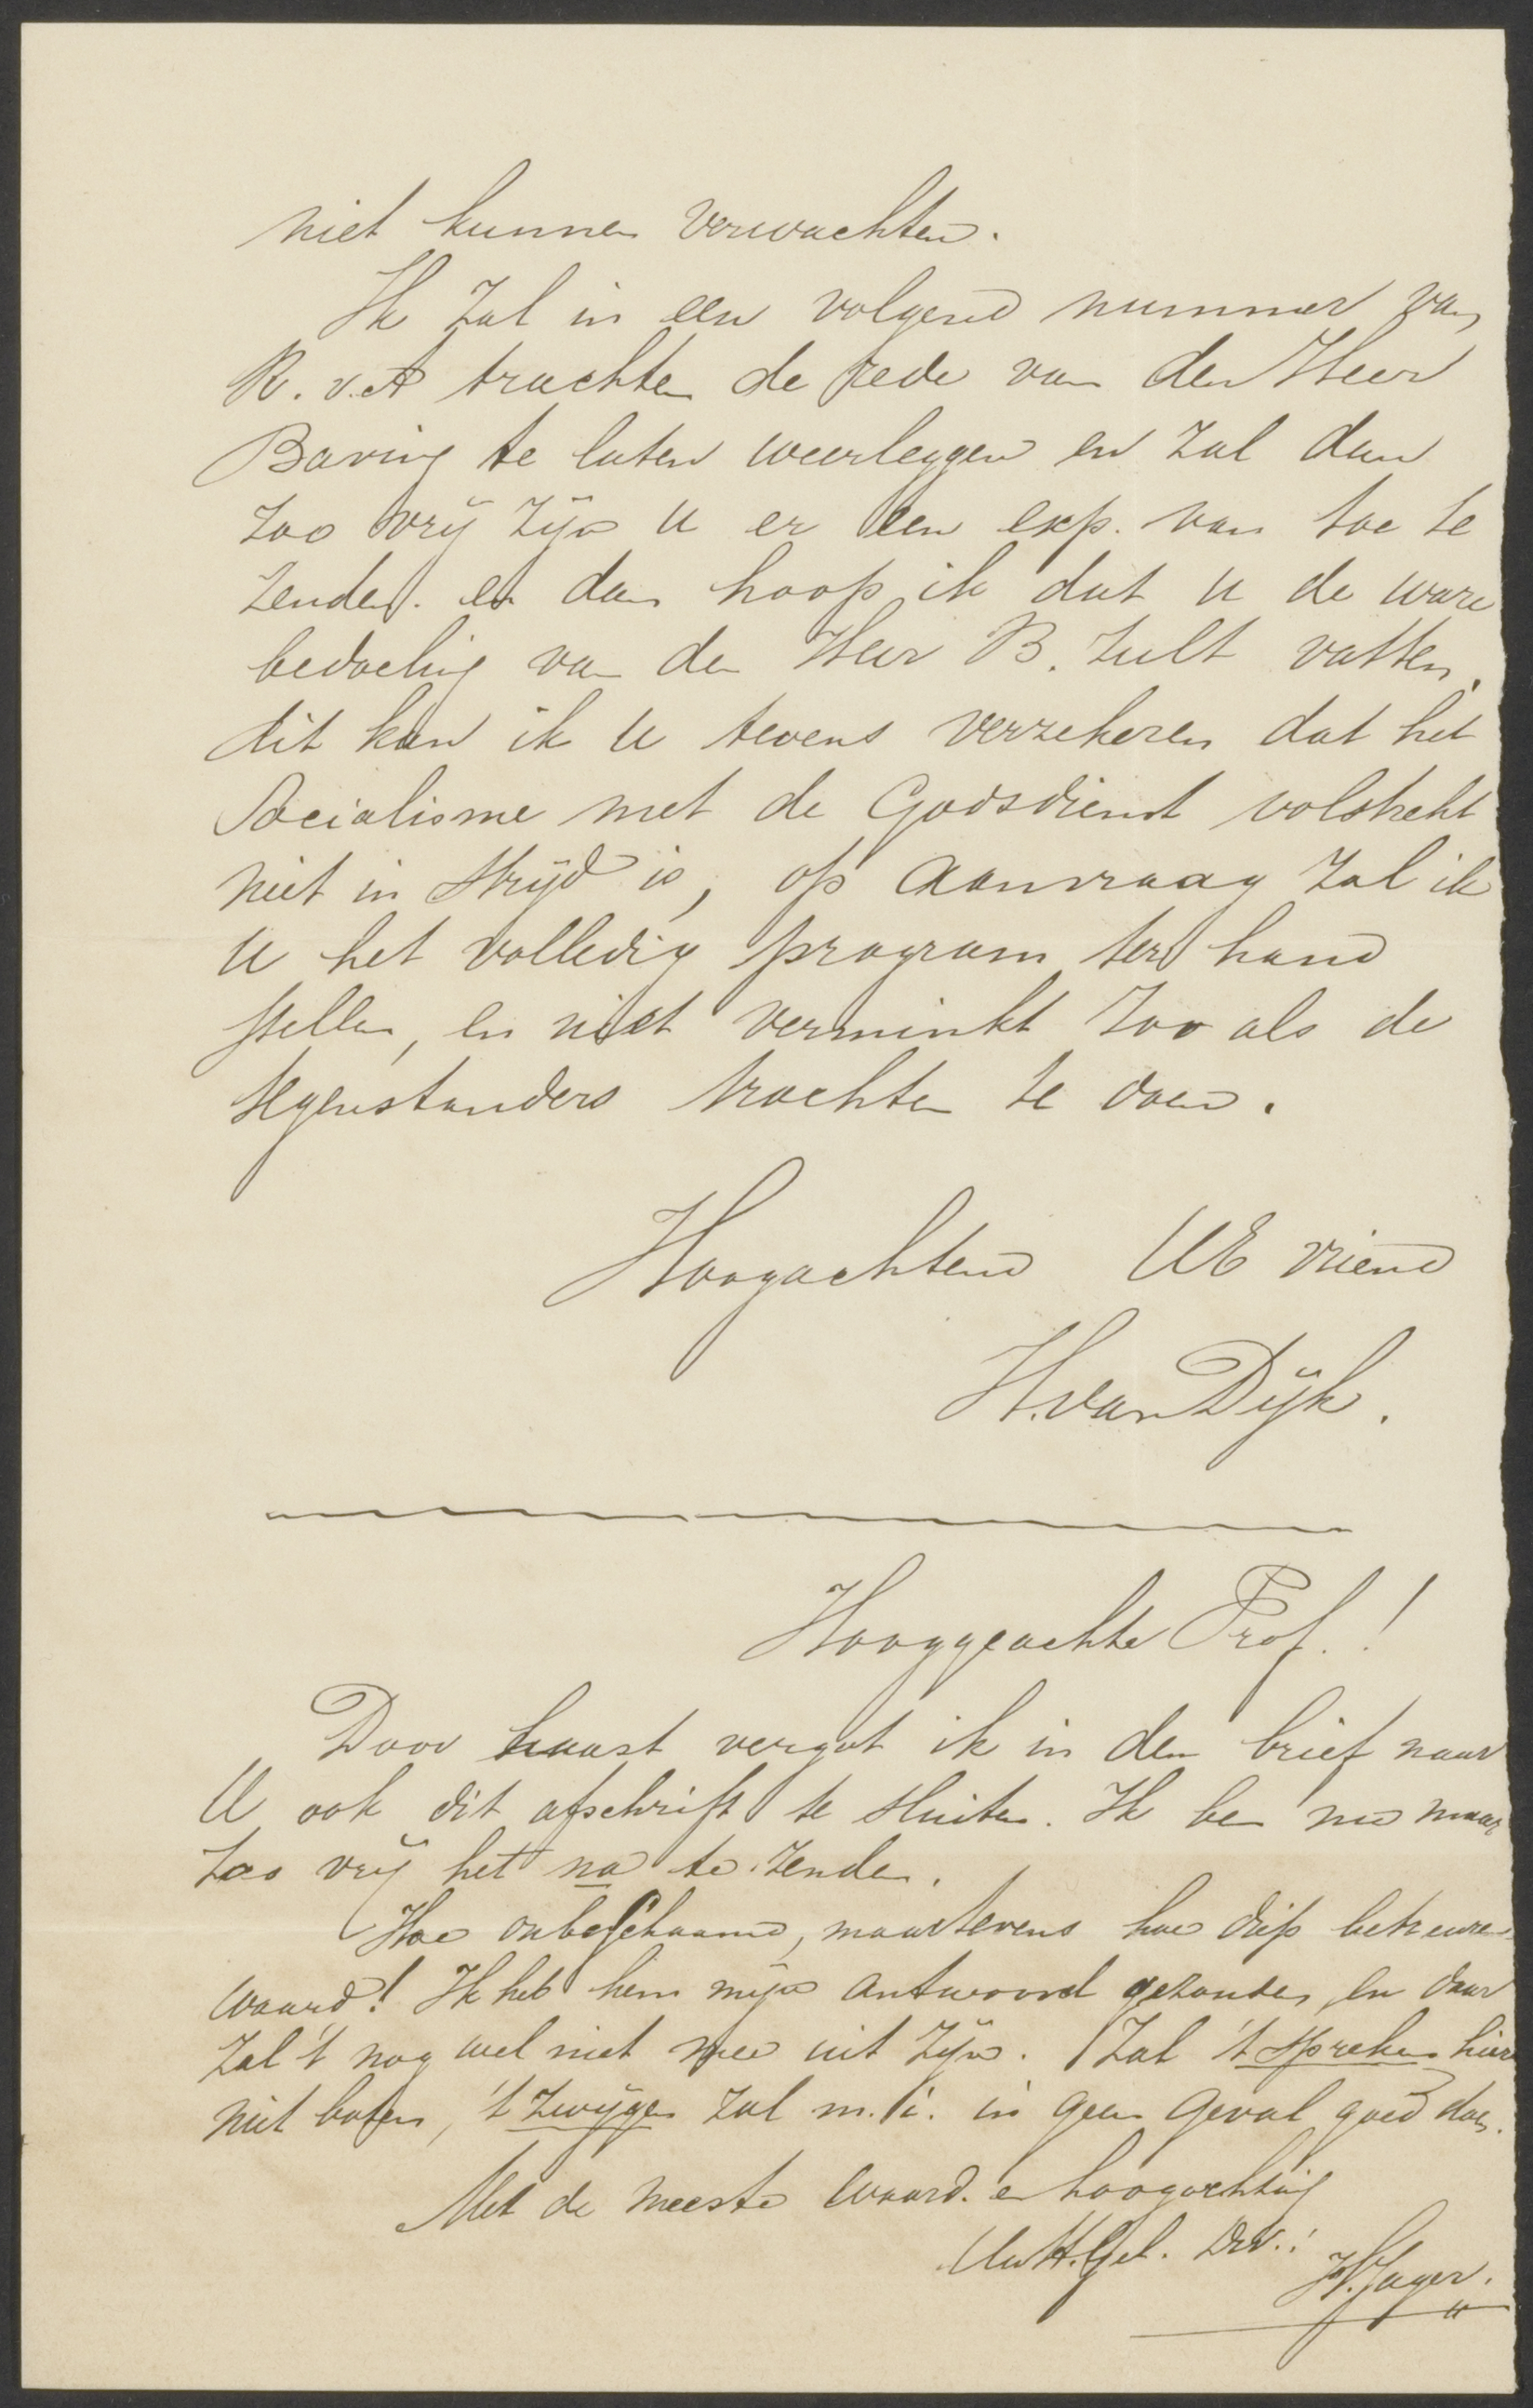 niet kunnen verwachten.
Ik zal in een volgend nummer van
R. v. A trachten de rede van den Heer
Baving te laten weerleggen en zal dan
zoo vrij zijn U er een exp. van toe te
zenden. en dan hoop ik dat U de ware
bedoeling van den Heer B. zult vatten,
dit kan ik U tevens verzekeren dat het
Socialisme met de Godsdienst volstrekt
niet in strijd is, op aanvraag zal ik
U het volledig program ter hand
stellen, en niet verminkt zoo als de
tegenstanders trachten te doen.
Hoogachtend UE vriend
H. van Dijk.
Hooggeachte Prof.!
Door haast vergat ik in den brief naar
U ook dit afschrift te sluiten. Ik ben nu maar
zoo vrij het na te zenden.
Hoe onbeschaamd, maar tevens hoe diep betreurens
waard! Ik heb hem mijn antwoord gezonden, en daar
zal 't nog wel niet mee uit zijn. Zal 't spreken hier
niet baten, 't zwijgen zal m. i. in geen geval goed doen.
Met de meeste waard. en hoogachting
Uw H.Gel. Dw.:
H. Jager.